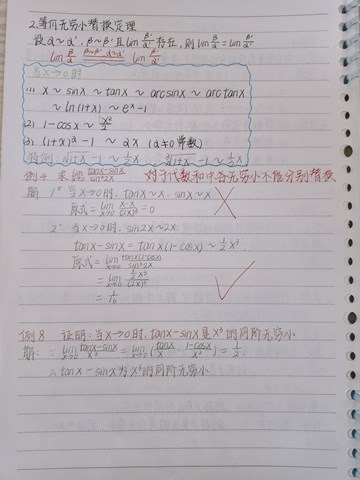 2.等价无穷小替换定理
设 α~α′, β~β′ 且 lim β′/α′ 存在, 则 lim β/α = lim β′/α′
lim β/α β~β′ α~α′ lim β′/α′
当x→0时
(1) x ~ sinx ~ tanx ~ arcsinx ~ arctanx
~ ln(1+x) ~ eˣ-1
(2) 1-cosx ~ x²/2
(3) (1+x)ᵅ-1 ~ αx (α≠0 常数)
特例 √(1+x) -1 ~ ½x ⁿ√(1+x) -1 ~ 1/n x
例4 求 lim (tanx-sinx)/sin³2x 对于代数和中各无穷小不能分别替换
解: 1° 当x→0时, tanx~x, sinx~x
原式= lim x→0 (x-x)/(2x)³ = 0
2° 当x→0时, sin2x~2x
tanx-sinx = tanx(1-cosx) ~ ½x³
原式= lim x→0 tanx(1-cosx)/sin³2x
= lim x→0 ½x³/(2x)³
= 1/16
例8 证明: 当x→0时, tanx-sinx是x³的同阶无穷小
解: ∵ lim x→0 (tanx-sinx)/x³ = lim x→0 (tanx/x · (1-cosx)/x²) = ½
∴ tanx-sinx为x³的同阶无穷小